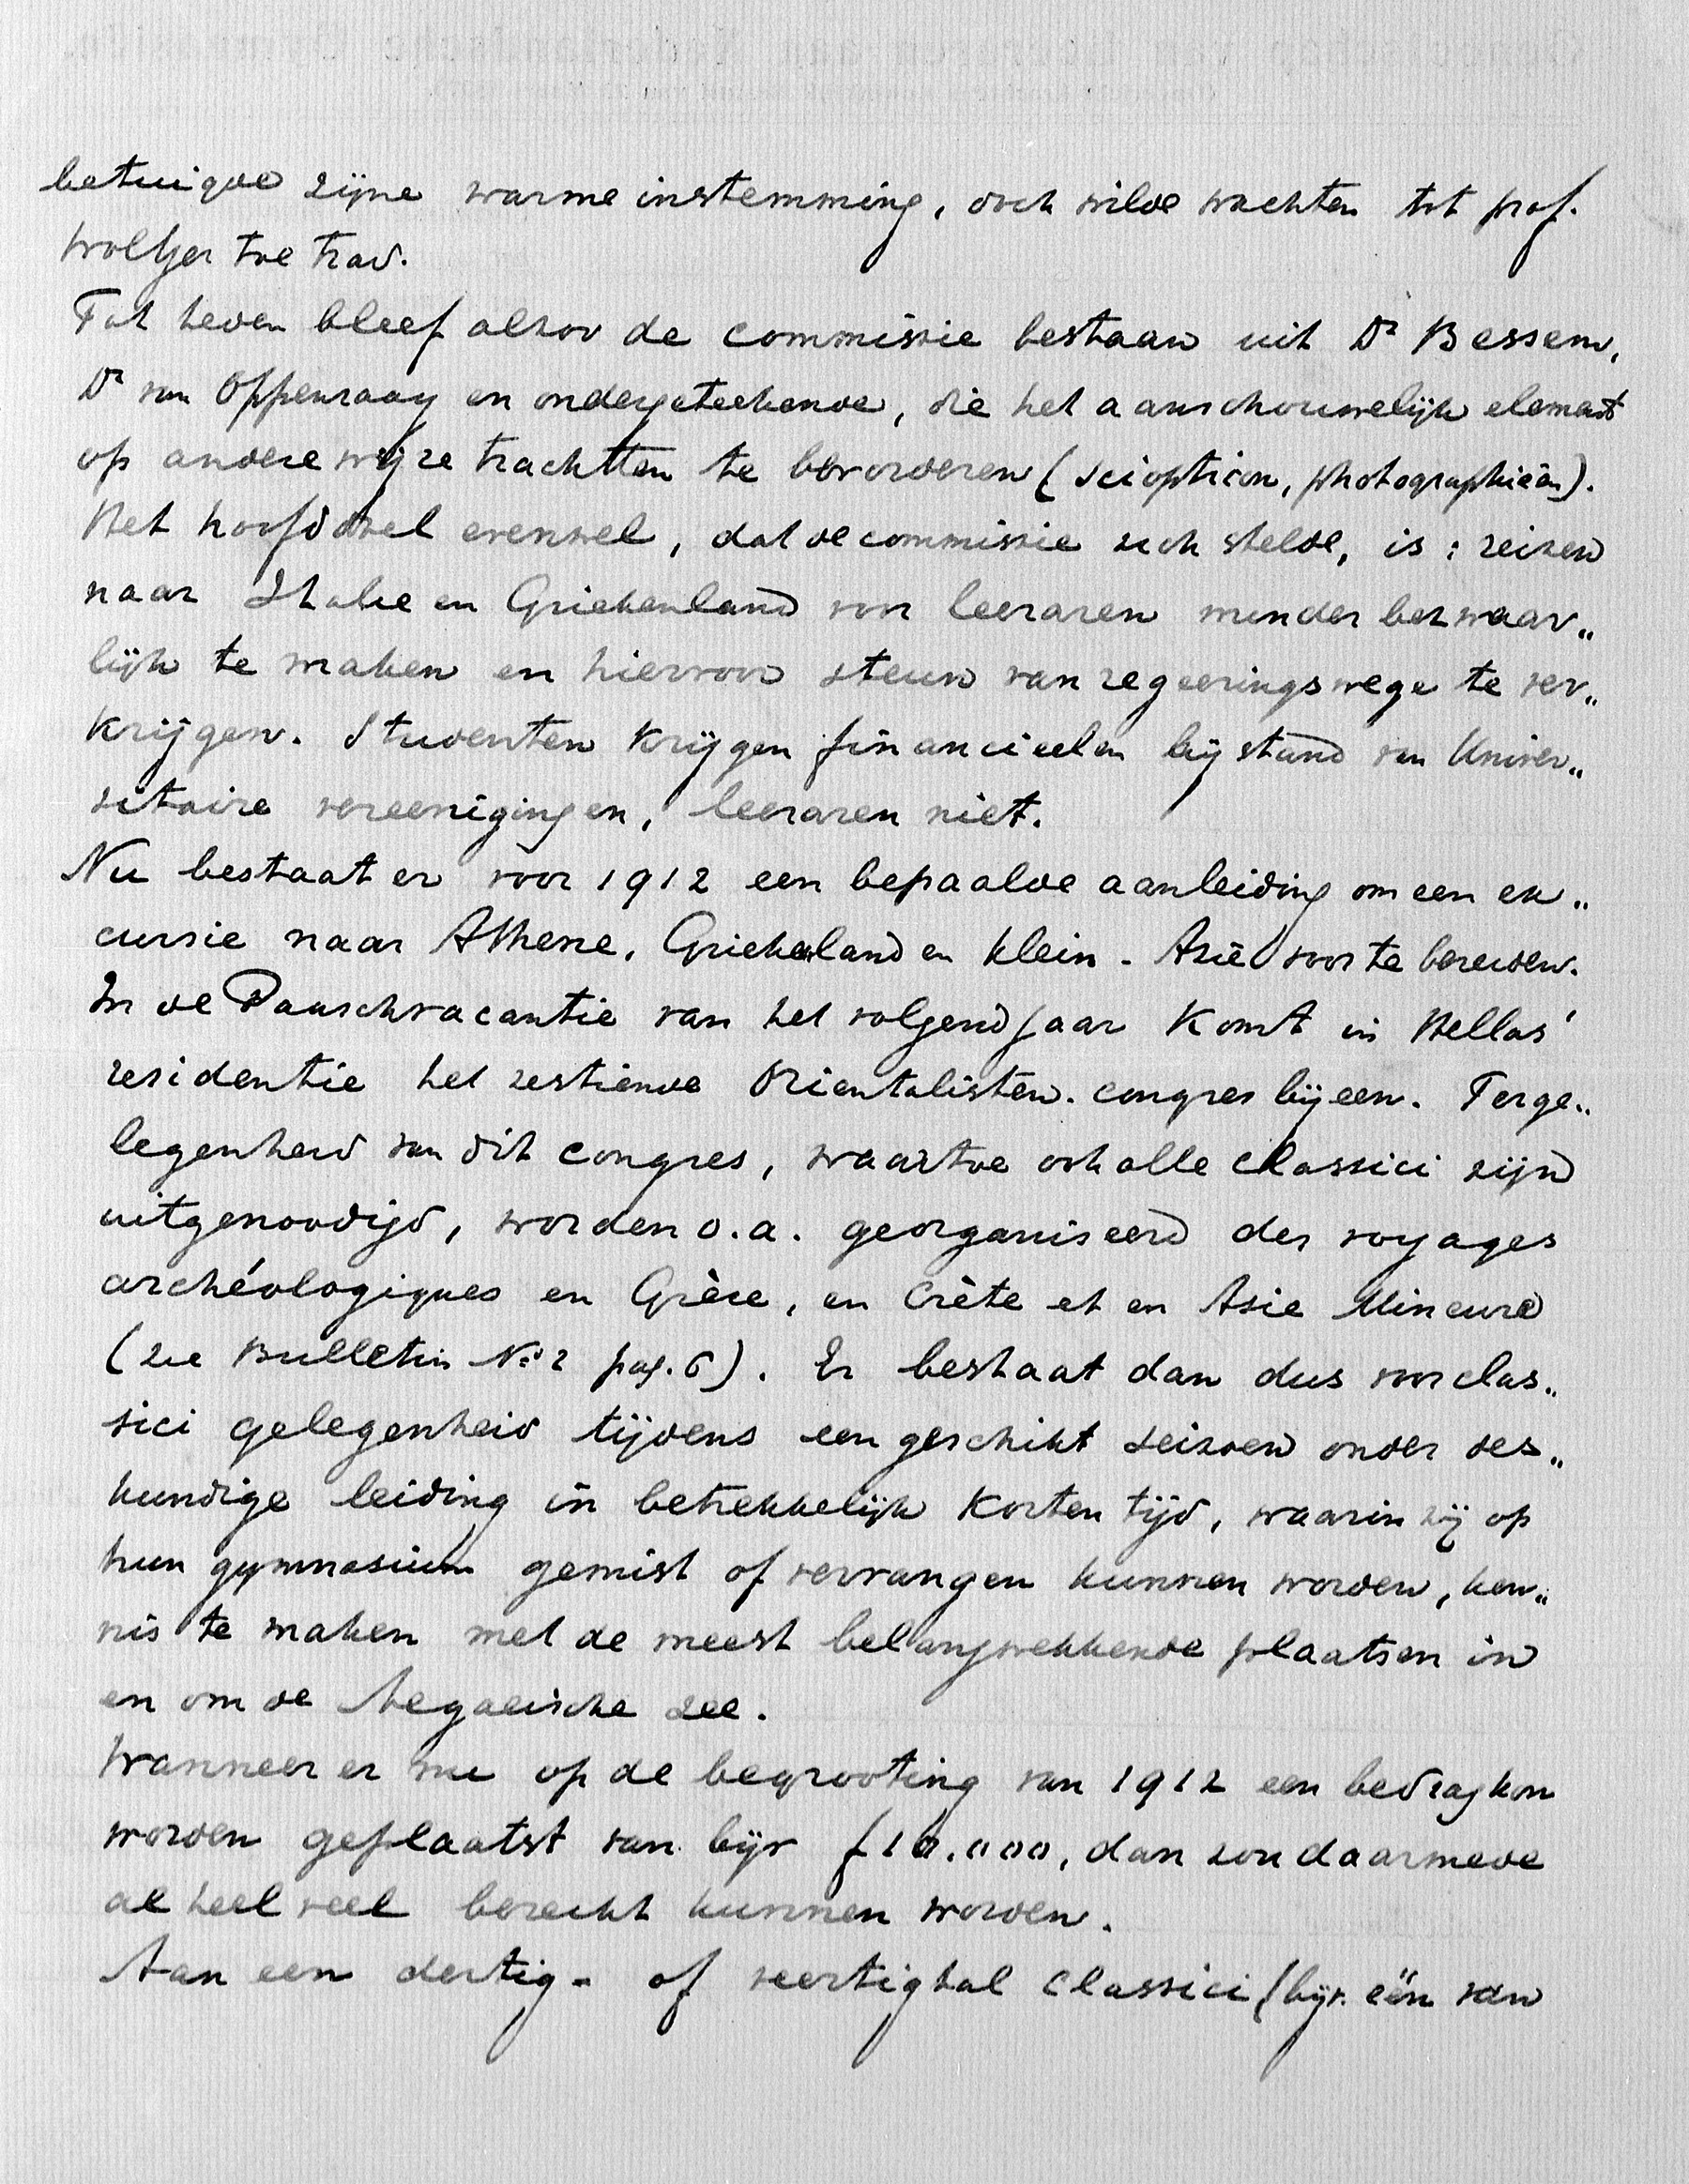 betuigde zijne warme instemming, doch wilde wachten tot prof.
Woltjer toe trad.
Tot heden bleef alzoo de commissie bestaan uit Dr Bessem,
Dr van Oppenraay en ondergeteekende, die het aanschouwelijk element
op andere wijze trachtten te bevorderen (scioption, photographieën).
Het hoofddoel evenwel, dat de commissie zich stelde, is: reizen
naar Italie en Griekenland voor leeraren minder bezwaar„
lijk te maken en hiervoor steun van regeeringswege te ver„
krijgen. Studenten krijgen financieelen bijstand van Univer„
sitaire vereenigingen, leeraren niet.
Nu bestaat er voor 1912 een bepaalde aanleiding om een ex„
cursie naar Athene, Griekenland en Klein-Azië voor te bereiden.
In de Paaschvacantie van het volgend jaar komt in Hellas'
residentie het zestiende Orientalisten-congres bijeen. Terge„
legenheid van dit congres, waartoe ook alle classici zijn
uitgenoodigd, worden o.a. georganiseerd des voyages
archéologiques en Grèce, en Crète et en Asie Mineure
(zie Bulletin No 2 pag. 6). Er bestaat dan dus voor clas„
sici gelegenheid tijdens een geschikt seizoen onder des„
kundige leiding in betrekkelijk korten tijd, waarin zij op
hun gymnasium gemist of vervangen kunnen worden, ken„
nis te maken met de meest belangwekkende plaatsen in
en om de Aegaeische zee.
Wanneer er nu op de begrooting van 1912 een bedrag kon
worden geplaatst van bijv f 10.000, dan zou daarmede
al heel veel bereikt kunnen worden.
Aan een dertig- of veertigtal classici (bijv. één van